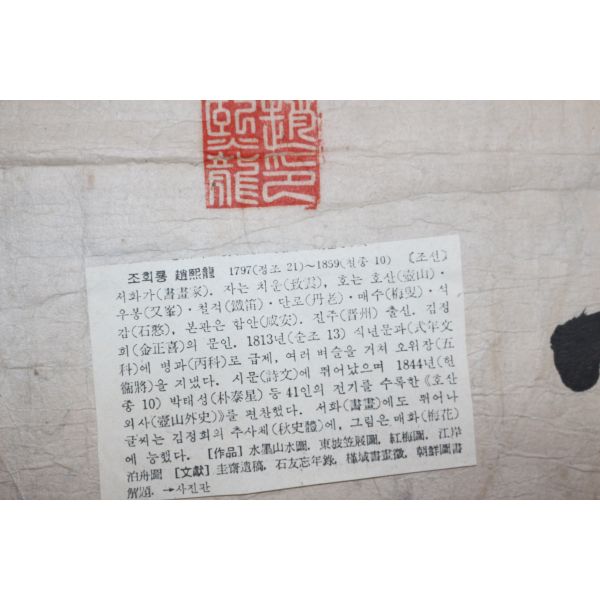 趙熙龍印
조희룡 趙熙龍 1797(정조 21)~1859(철종 10) 〔조선〕
서화가(書畫家). 자는 치운(致雲), 호는 호산(壺山)·
우봉(又峯)·철적(鐵笛)·단로(丹老)·매수(梅叟)·석
감(石憨), 본관은 함안(咸安). 진주(晋州) 출신. 김정
희(金正喜)의 문인. 1813년(순조 13) 식년문과(式年文
科)에 병과(丙科)로 급제, 여러 벼슬을 거쳐 오위장(五
衞將)을 지냈다. 시문(詩文)에 뛰어났으며 1844년(헌
종 10) 박태성(朴泰星) 등 41인의 전기를 수록한 《호산
외사(壺山外史)》를 편찬했다. 서화(書畫)에도 뛰어나
글씨는 김정희의 추사체(秋史體)에, 그림은 매화(梅花)
에 능했다. [作品] 水墨山水圖, 東坡笠屐圖, 紅梅圖, 江岸
泊舟圖 [文獻] 圭齋遺稿, 石友忘年錄, 槿域書畫徵, 朝鮮圖書
解題. →사진판